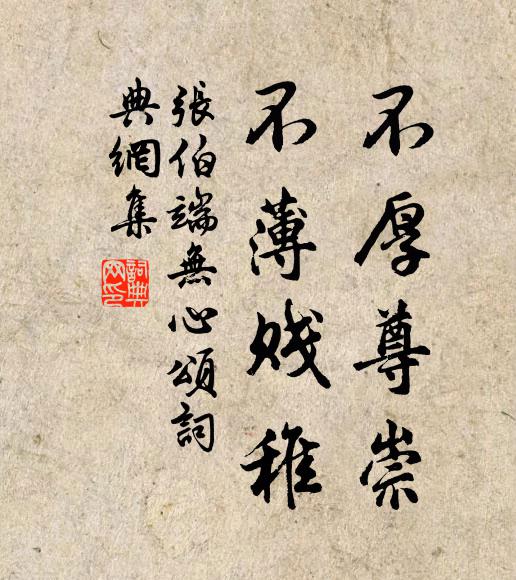 不厚尊崇
不薄贱稚
張伯端無心頌詞
典網集
詞典网印